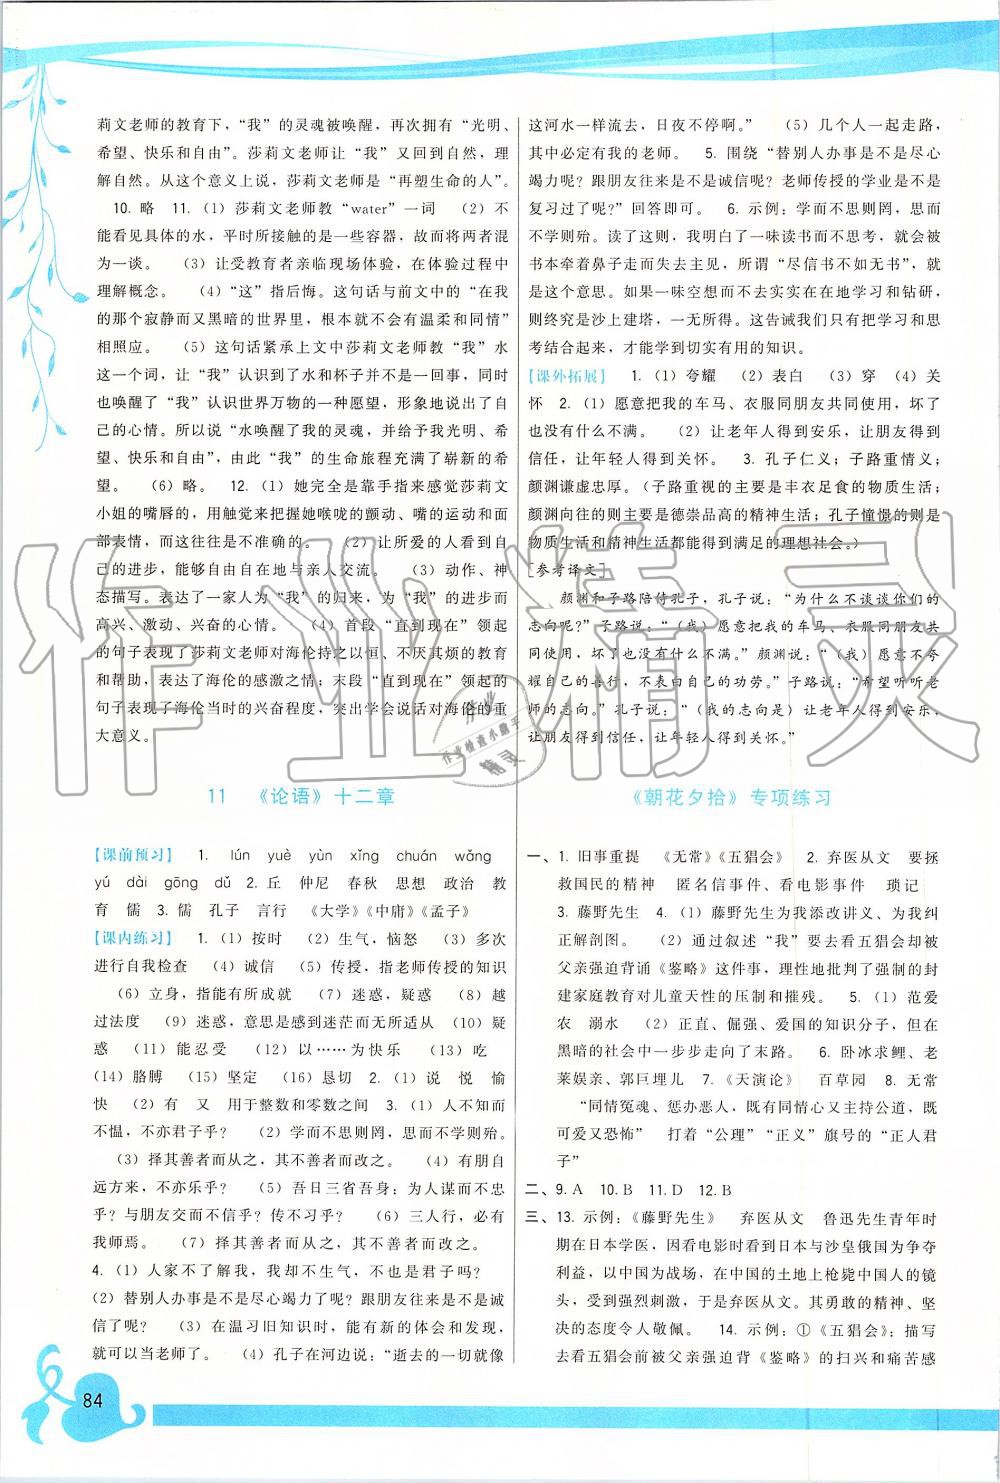 莉文老师的教育下，“我”的灵魂被唤醒，再次拥有“光明、
希望、快乐和自由”。莎莉文老师让“我”又回到自然，理
解自然。从这个意义上说，莎莉文老师是“再塑生命的人”。
10. 略　11.（1）莎莉文老师教“water”一词　（2）不
能看见具体的水，平时所接触的是一些容器，故而将两者混
为一谈。　（3）让受教育者亲临现场体验，在体验过程中
理解概念。　（4）“这”指后悔。这句话与前文中的“在我
的那个寂静而又黑暗的世界里，根本就不会有温柔和同情”
相照应。　（5）这句话紧承上文中莎莉文老师教“我”水
这一个词，让“我”认识到了水和杯子并不是一回事，同时
也唤醒了“我”认识世界万物的一种愿望，形象地说出了自
己的心情。所以说“水唤醒了我的灵魂，并给予我光明、希
望、快乐和自由”，由此“我”的生命旅程充满了崭新的希
望。　（6）略。　12.（1）她完全是靠手指来感觉莎莉文
小姐的嘴唇的，用触觉来把握她喉咙的颤动、嘴的运动和面
部表情，而这往往是不准确的。　（2）让所爱的人看到自
己的进步，能够自由自在地与亲人交流。　（3）动作、神
态描写。表达了一家人为“我”的归来，为“我”的进步而
高兴、激动、兴奋的心情。　（4）首段“直到现在”领起
的句子表现了莎莉文老师对海伦持之以恒、不厌其烦的教育
和帮助，表达了海伦的感激之情；末段“直到现在”领起的
句子表现了海伦当时的兴奋程度，突出学会说话对海伦的重
大意义。
11　《论语》十二章
【课前预习】　1.　lún　yuè　yùn　xǐng　chuán　wǎng
yú　dài　gōng　dǔ　2. 丘　仲尼　春秋　思想　政治　教
育　儒　3. 儒　孔子　言行　《大学》《中庸》《孟子》
【课内练习】　1.（1）按时　（2）生气，恼怒　（3）多次
进行自我检查　（4）诚信　（5）传授，指老师传授的知识
（6）立身，指能有所成就　（7）迷惑，疑惑　（8）越
过法度　（9）迷惑，意思是感到迷茫而无所适从　（10）疑
惑　（11）能忍受　（12）以……为快乐　（13）吃
（14）胳膊　（15）坚定　（16）恳切　2.（1）说　悦　愉
快　（2）有　又　用于整数和零数之间　3.（1）人不知而
不愠，不亦君子乎？　（2）学而不思则罔，思而不学则殆。
（3）择其善者而从之，其不善者而改之。　（4）有朋自
远方来，不亦乐乎？　（5）吾日三省吾身：为人谋而不忠
乎？与朋友交而不信乎？传不习乎？　（6）三人行，必有
我师焉。　（7）择其善者而从之，其不善者而改之。
4.（1）人家不了解我，我却不生气，不也是君子吗？
（2）替别人办事是不是尽心竭力了呢？跟朋友往来是不是诚
信了呢？　（3）在温习旧知识时，能有新的体会和发现，
就可以当老师了。　（4）孔子在河边说：“逝去的一切就像
这河水一样流去，日夜不停啊。”　（5）几个人一起走路，
其中必定有我的老师。　5. 围绕“替别人办事是不是尽心
竭力呢？跟朋友往来是不是诚信呢？老师传授的学业是不是
复习过了呢？”回答即可。　6. 示例：学而不思则罔，思而
不学则殆。读了这则，我明白了一味读书而不思考，就会被
书本牵着鼻子走而失去主见，所谓“尽信书不如无书”，就
是这个意思。如果一味空想而不去实实在在地学习和钻研，
则终究是沙上建塔，一无所得。这告诫我们只有把学习和思
考结合起来，才能学到切实有用的知识。
【课外拓展】　1.（1）夸耀　（2）表白　（3）穿　（4）关
怀　2.（1）愿意把我的车马、衣服同朋友共同使用，坏了
也没有什么不满。　（2）让老年人得到安乐，让朋友得到
信任，让年轻人得到关怀。　3. 孔子仁义；子路重情义；
颜渊谦虚忠厚。（子路重视的主要是丰衣足食的物质生活；
颜渊向往的则主要是德崇品高的精神生活；孔子憧憬的则是
物质生活和精神生活都能得到满足的理想社会。）
[参考译文]
颜渊和子路陪侍孔子，孔子说：“为什么不谈谈你们的
志向呢？”子路说：“（我）愿意把我的车马、衣服同朋友
共同使用，坏了也没有什么不满。”颜渊说：“（我）愿意不夸
耀自己的善行，不表白自己的功劳。”子路说：“希望听听老
师的志向。”孔子说：“（我的志向是）让老年人得到安乐，
让朋友得到信任，让年轻人得到关怀。”
《朝花夕拾》专项练习
一、1. 旧事重提　《无常》《五猖会》　2. 弃医从文　要拯
救国民的精神　匿名信事件、看电影事件　琐记
3. 藤野先生　4.（1）藤野先生为我添改讲义、为我纠
正解剖图。　（2）通过叙述“我”要去看五猖会却被
父亲强迫背诵《鉴略》这件事，理性地批判了强制的封
建家庭教育对儿童天性的压制和摧残。　5.（1）范爱
农　溺水　（2）正直、倔强、爱国的知识分子，但在
黑暗的社会中一步步走向了末路。　6. 卧冰求鲤、老
莱娱亲、郭巨埋儿　7.《天演论》　百草园　8. 无常
“同情冤魂、惩办恶人，既有同情心又主持公道，既
可爱又恐怖”　打着“公理”“正义”旗号的“正人君
子”
二、9. A　10. B　11. D　12. B
三、13. 示例：《藤野先生》　弃医从文　鲁迅先生青年时
期在日本学医，因看电影时看到日本与沙皇俄国为争夺
利益，以中国为战场，在中国的土地上枪毙中国人的镜
头，受到强烈刺激，于是弃医从文。其勇敢的精神、坚
决的态度令人敬佩。　14. 示例：①《五猖会》：描写
去看五猖会前被父亲强迫背《鉴略》的扫兴和痛苦感
84
作业精灵